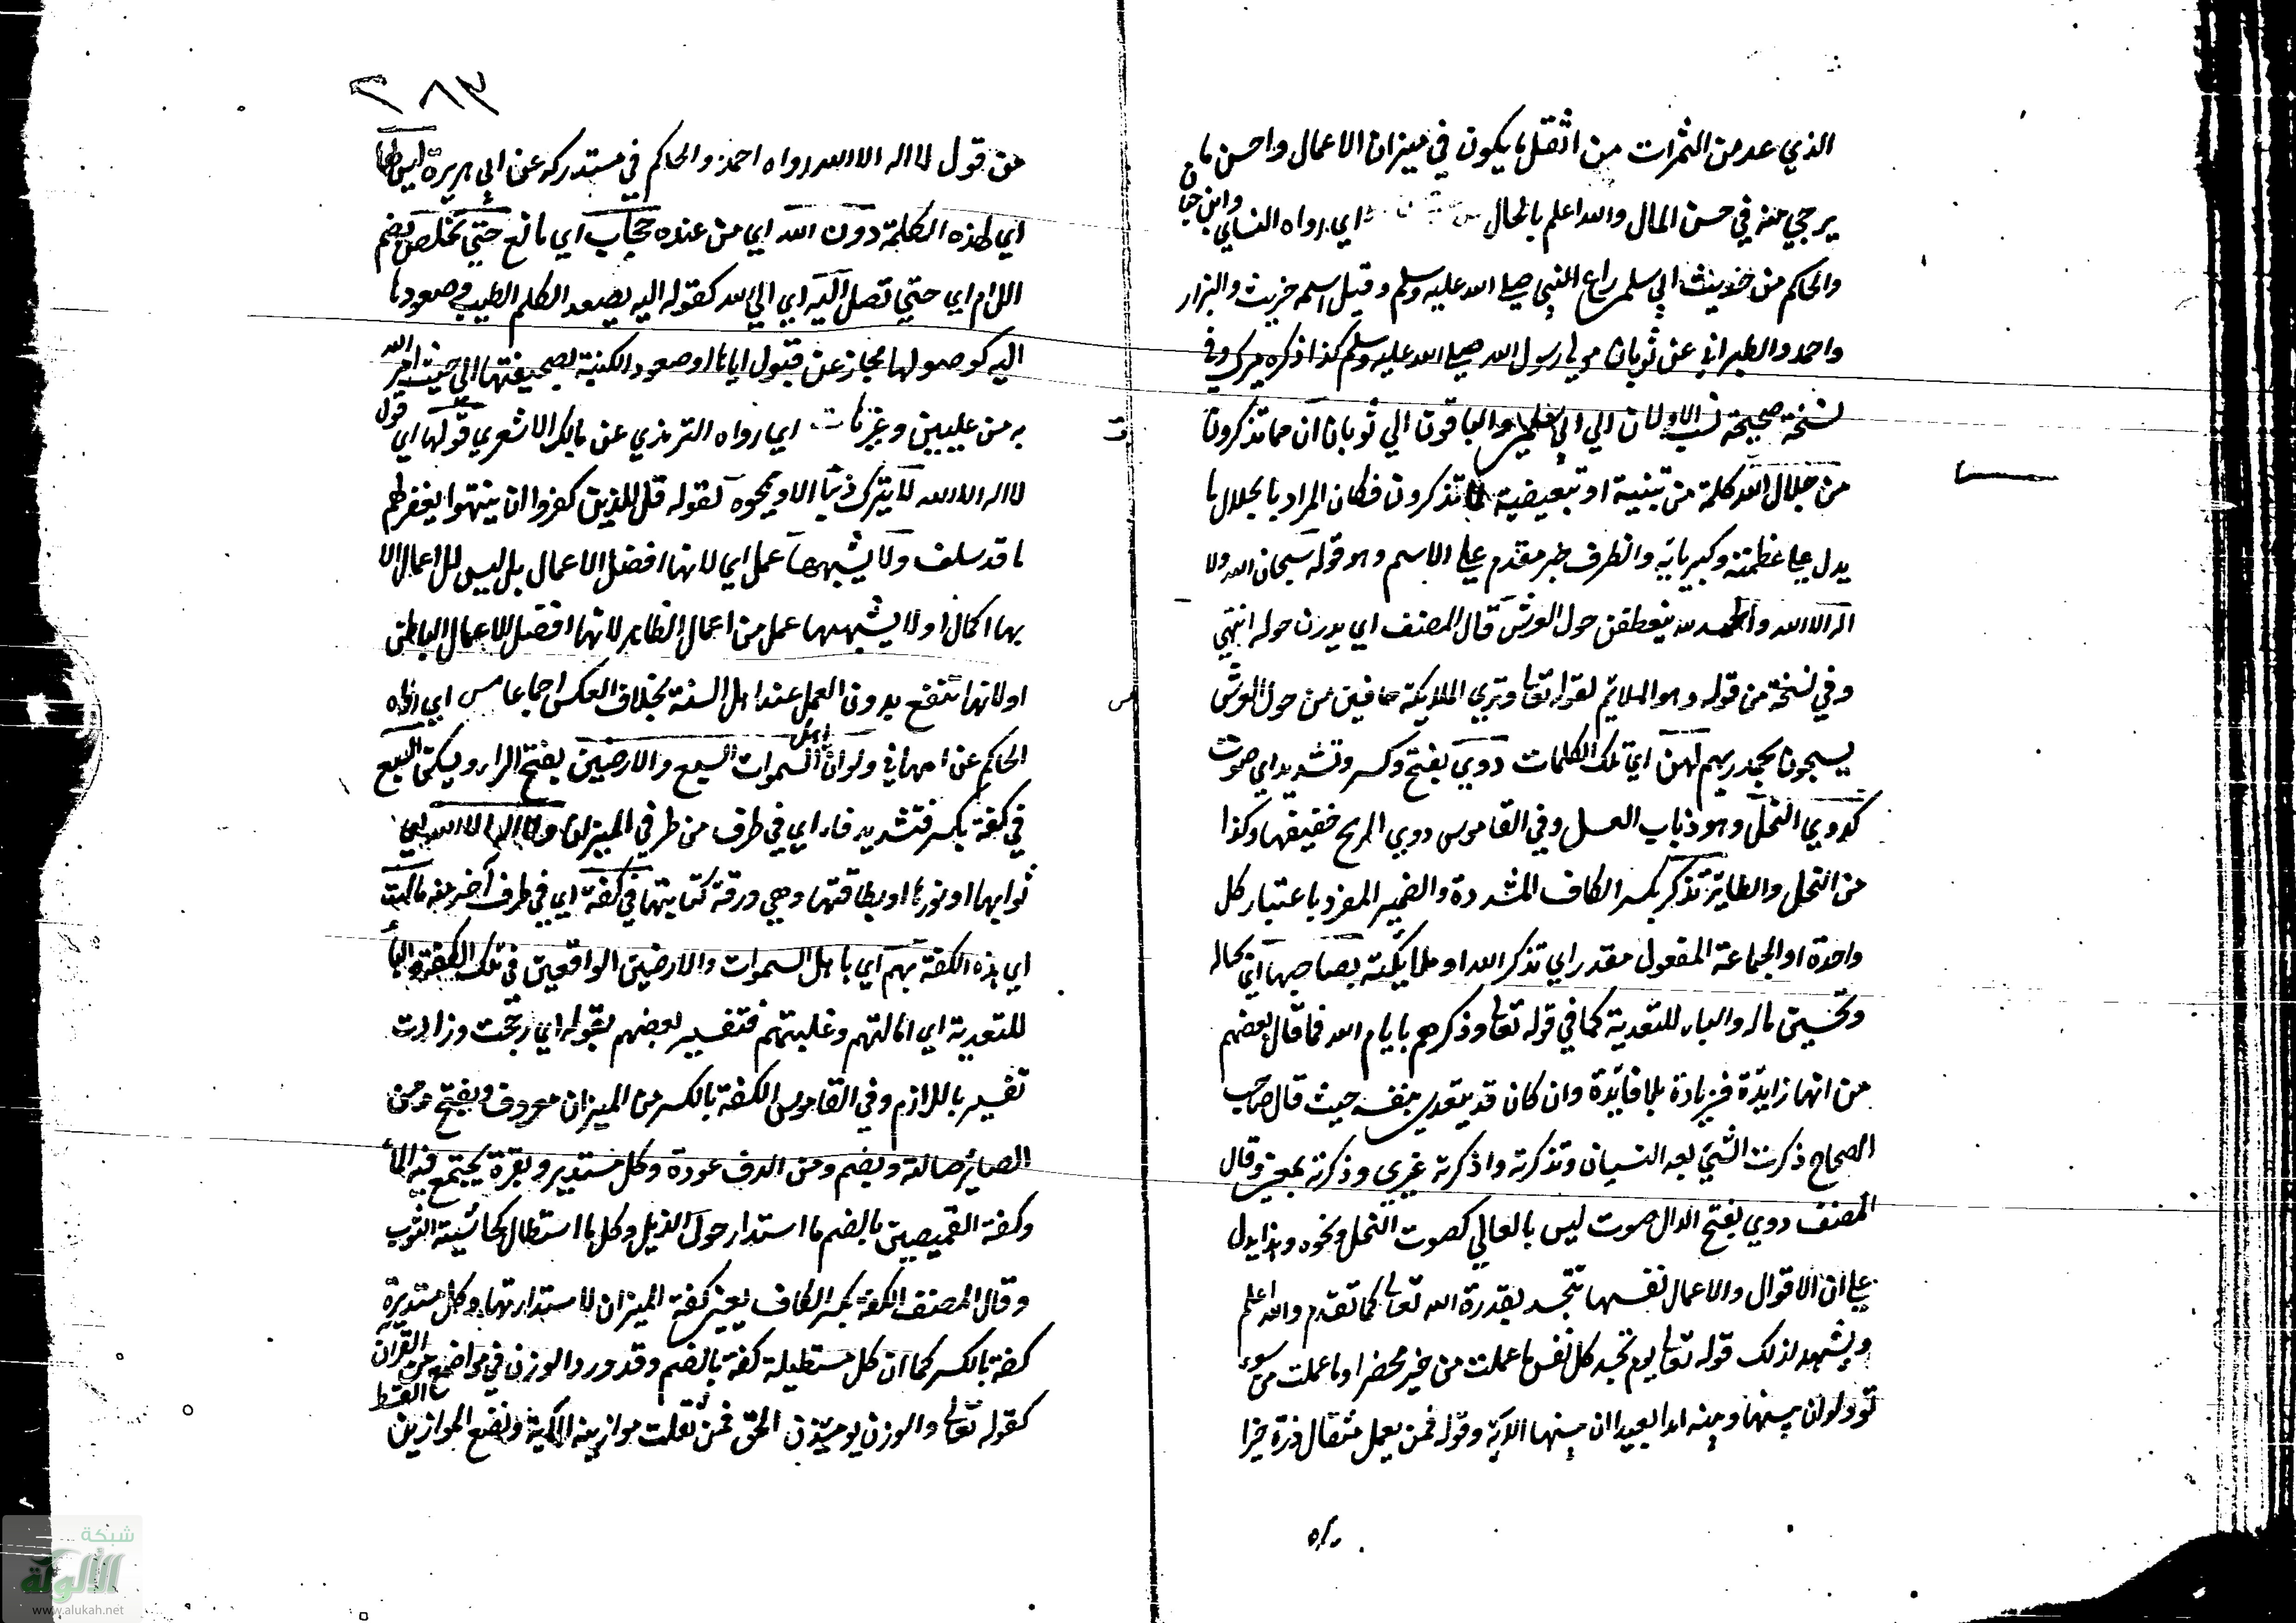 الذي عد من الثمرات من اثقل ما يكون في ميزان الاعمال واحسن ما
يرجي منه في حسن المال والله اعلم بالحال اي رواه النساي وابن حبان
والحاكم من حديث ابي سلمى راعي النبي صلى الله عليه وسلم وقيل اسمه حريث والبزار
واحمد والطبراني عن ثوبان مولي رسول الله صلى الله عليه وسلم كذا ذكره ميرك وفي
نسخة صحيحة نسب الاولان الي ابي سلمى والباقون الي ثوبان ان مما تذكرون
من جلال الله كلمة من تبنية او تبعيضية لما تذكرون فكان المراد بالجلال ما
يدل على عظمته وكبريائه والظرف خبر مقدم على الاسم وهو قوله سبحان الله ولا
اله الا الله والحمد لله ينعطفن حول العرش قال المصنف اي يدرن حوله انتهي
وفي نسخة من قوله وهو الملايم لقوله تعا وتري الملايكة حافين من حول العرش
يسبحون بحمد ربهم لهن اي تلك الكلمات دوي بفتح وكسر وتشديد اي صوت
كدوي النحل وهو ذباب العسل وفي القاموس دوي الريح حفيفها وكذا
من النحل والطاير تذكر بكسر الكاف المشددة والضمير المفرد باعتبار كل
واحدة او الجماعة المفعول مقدر اي تذكر الله او ملائكته بصاحبها اي بحاله
وتحسين ماله والباء للتعدية كما في قوله تعالى وذكرهم بايام الله فما قال بعضهم
من انها زايدة فزيادة بلا فايدة وان كان قد يتعدي بنفسه حيث قال صاحب
الصحاح ذكرت الشئ بعد النسيان وتذكرته واذكرته غيري وذكرته بمعني وقال
المصنف دوي بفتح الدال صوت ليس بالعالي كصوت النحل ونحوه وهذا يدل
على ان الاقوال والاعمال نفسها تتجسد بقدرة الله تعالى كما تقدم والله اعلم
ويشهد لذلك قوله تعالى يوم تجد كل نفس ما عملت من خير محضرا وما عملت من سوء
تود لو ان بينها وبينه امدا بعيدا ان بينها الاية وقوله فمن يعمل مثقال ذرة خيرا
٣٨٣
من قول لا اله الا الله رواه احمد والحاكم في مستدركه عن ابي هريرة ليس لها
اي لهذه الكلمة دون الله اي من عنده حجاب اي مانع حتي تخلص بضم
اللام اي حتي تصل اليه اي الي الله كقوله اليه يصعد الكلم الطيب وصعودها
اليه كوصولها مجاز عن قبول اياها او صعود الكتبة بصحيفتها الي حيث امر الله
به من عليين وغيرها ت اي رواه الترمذي عن مالك الاشعري قولها اي قول
لا اله الا الله لا يترك ذنبا الا ويمحوه كقوله قل للذين كفروا ان ينتهوا يغفر لهم
ما قد سلف ولا يشبهها عمل اي لانها افضل الاعمال بل ليس للاعمال الا
بها اكمال او لا يشبهها عمل من اعمال الظاهر لانها افضل الاعمال الباطن
او لانها تنفع بدون العمل عند اهل السنة بخلاف العكس اجماعا مس اي رواه
الحاكم عن ام هاني ولو ان اهل السموات السبع والارضين بفتح الراء ويسكن السبع
في كفة بكسر فتشديد فاء اي في طرف من طرفي الميزان ولا اله الا الله يعني
ثوابها او نورها او بطاقتها وهي ورقة كتابتها في كفة اي في طرف آخر منه مالت
اي هذه الكفة بهم اي باهل السموات والارضين الواقعين في تلك الكفة والبا
للتعدية اي امالتهم وغلبتهم فتفسير بعضهم بقوله اي رجحت وزادت
تفسير باللازم وفي القاموس الكفة بالكسر من الميزان معروف ويفتح ومن
الصايد حبالته ويضم ومن الدف عوده وكل مستدير ونقرة يجتمع فيه الما
وكفة القميص بالضم ما استدار حول الذيل وكل ما استطال كحاشية الثوب
وقال المصنف الكفة بكسر الكاف يعني كفة الميزان لاستدارتها وكل مستديرة
كفة بالكسر كما ان كل مستطيلة كفة بالضم وقد ورد الوزن في مواضع من القرآن
كقوله تعالى والوزن يومئذن الحق فمن ثقلت موازينه الاية ونضع الموازين القسط
شبكة
الألوكة
www.alukah.net